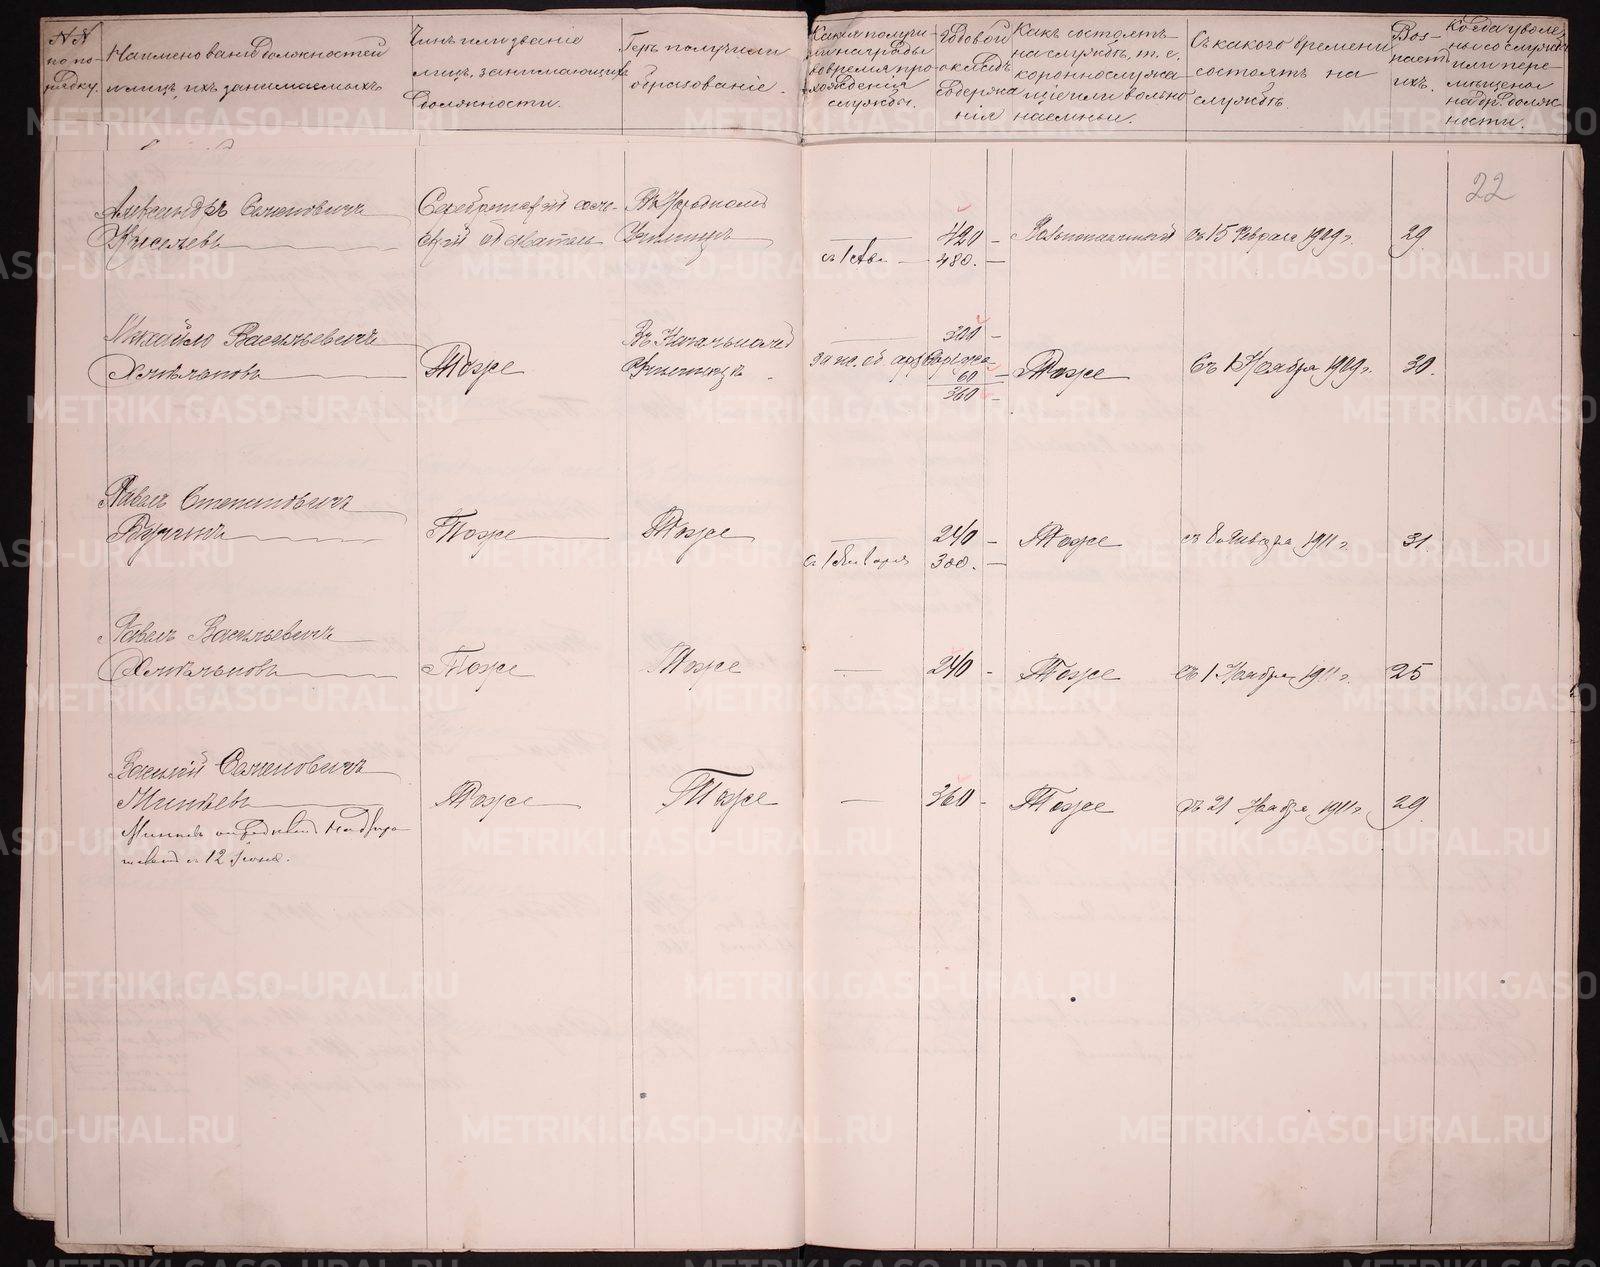 №№ по порядку.
Наименованіе должностей и лицъ, ихъ занимаемыхъ
Чинъ или званіе лицъ, занимающихъ должности.
Гдѣ получили образованіе.
Какія получили награды во время прохожденія службы.
Годовой окладъ содержанія
Какъ состоятъ на службѣ, т. е. коронно служащіе или вольнонаемные.
Съ какого времени состоятъ на службѣ.
Возрастъ ихъ.
Когда уволены со службы или перемѣщены на др. должности.
22
Александръ Семеновичъ
Киселевъ
обыватель
Въ Народномъ
Училищѣ
420 —
480. —
Вольнонаемный
съ 15 Февраля 1909 г.
29
Михайло Васильевичъ
Емельяновъ
Тоже
Въ Начальномъ
Училищѣ
300 —
60 —
360 —
Тоже
Съ 1 Ноября 1909 г.
30.
Павелъ Степановичъ
Тоже
Тоже
240 —
с 1 Января
300. —
Тоже
съ 8 Января 1911 г.
31.
Павелъ Васильевичъ
Емельяновъ
Тоже
Тоже
—
240 -
Тоже
съ 1 Ноября 1911 г.
25
Василій Семеновичъ
Минѣевъ
Тоже
Тоже
—
360 -
Тоже
съ 21 Ноября 1911 г.
29
с 12 Іюня.
METRIKI.GASO-URAL.RU